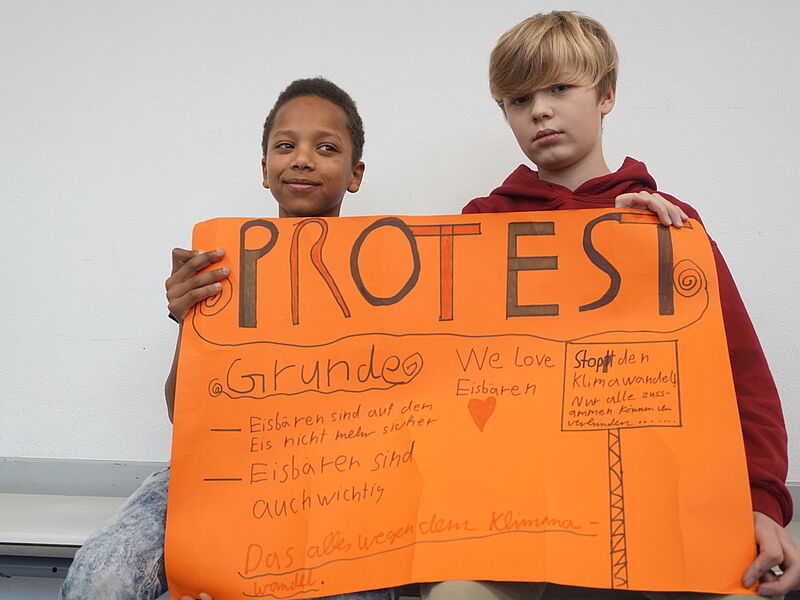 PROTEST
Grunde
— Eisbären sind auf dem
Eis nicht mehr sicher
— Eisbären sind
auch wichtig
We love
Eisbären
Stoppt den
Klimawandel!
Nur alle zuss-
ammen können ihn
verhindern ......
Das alles wegen dem Klimma-
wandel.